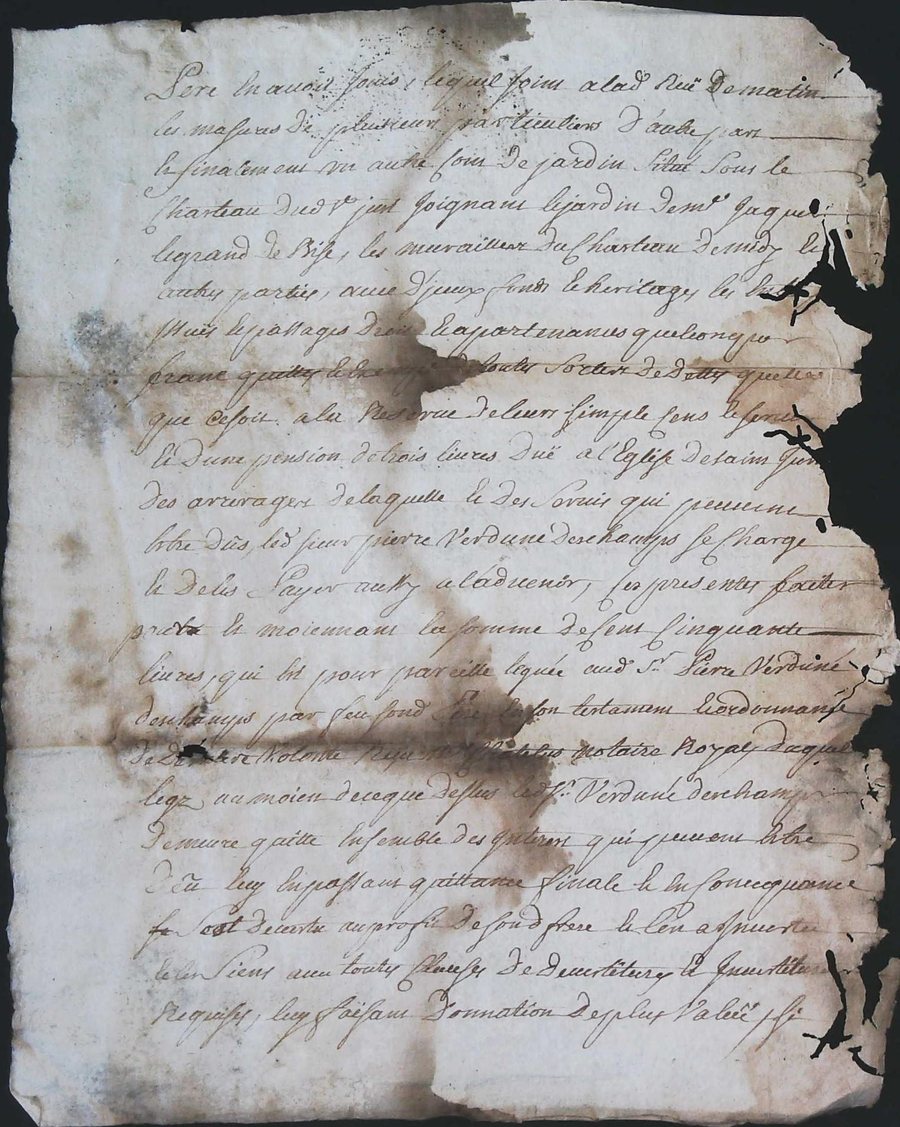 Pere En avoit Jouis, lequel Joint a lad rue De matin
les masures de plusieurs particuliers D'autre part
et finalement un autre Coin De jardin Situé Sous le
Charteau Dud Joignant le jardin De mr Jaques
legrand de Bise, les murailles du Charteau De midy et
autres parties, avec D'jeux fonds et heritages les
et passages Droits et apartenances quelconq
franc quittes et de toutes Sortes De Dettes quelle
que Cesoit a la Reserve de leurs Simple Cens et Servis
et Dune pension de trois livres Duë a l'Eglise De saint
des arrerages de laquelle et des Servis qui peuvent
Estre Dûs, led sieur pierre Verduné deschamps Se Charge
et de les Payer aussy a l'advenir, Ces presentes faites
et moiennant la somme de Cent Cinquante
livres, qui Est pour pareille leguée aud Sr Pierre Verduné
deschamps par feu sond Pere En son testament et ordonnance
De Derniere Volonté notaire Royal Duquel
legz au moien de ce que dessus led Sr Verduné deschamps
Demeure quitte Ensemble des Interets qui peuvent Estre
Dû luy En passant quittance finale et En Consequance
Soit devertu au profit De sond frere et l'en a Jnvertu
et les Siens avec toutes Clauses De Devertitures et Jnvertitures
Requises, luy faisant Donnation De plus Valeüe Si